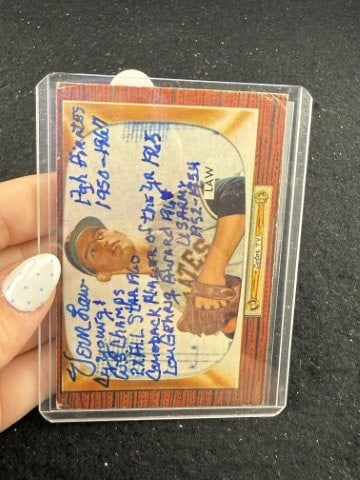 Pgh Pirates
1950-1967
Vern Law
Cy Young
W.S. Champs
2X All Star 1960
Comeback Player of the Yr 1965
Lou Gehrig Award
US ARMY
1952-1954
LAW
Color TV